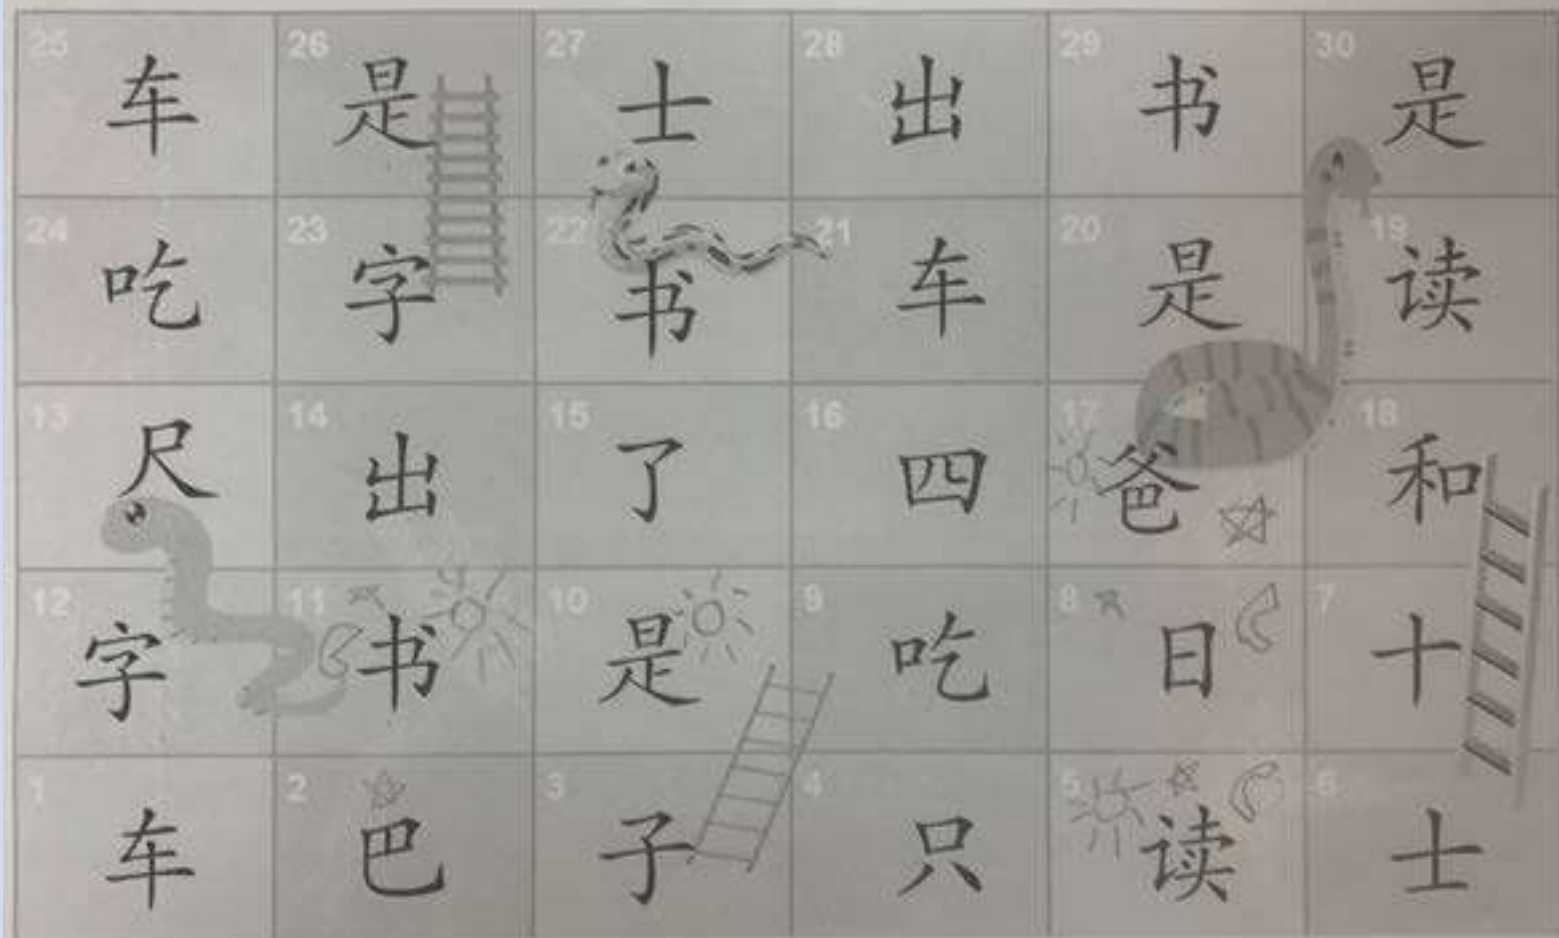 25 车 26 是 27 士 28 出 29 书 30 是
24 吃 23 字 22 书 21 车 20 是 19 读
13 尺 14 出 15 了 16 四 17 爸 18 和
12 字 11 书 10 是 9 吃 8 日 7 十
1 车 2 巴 3 子 4 只 5 读 6 士